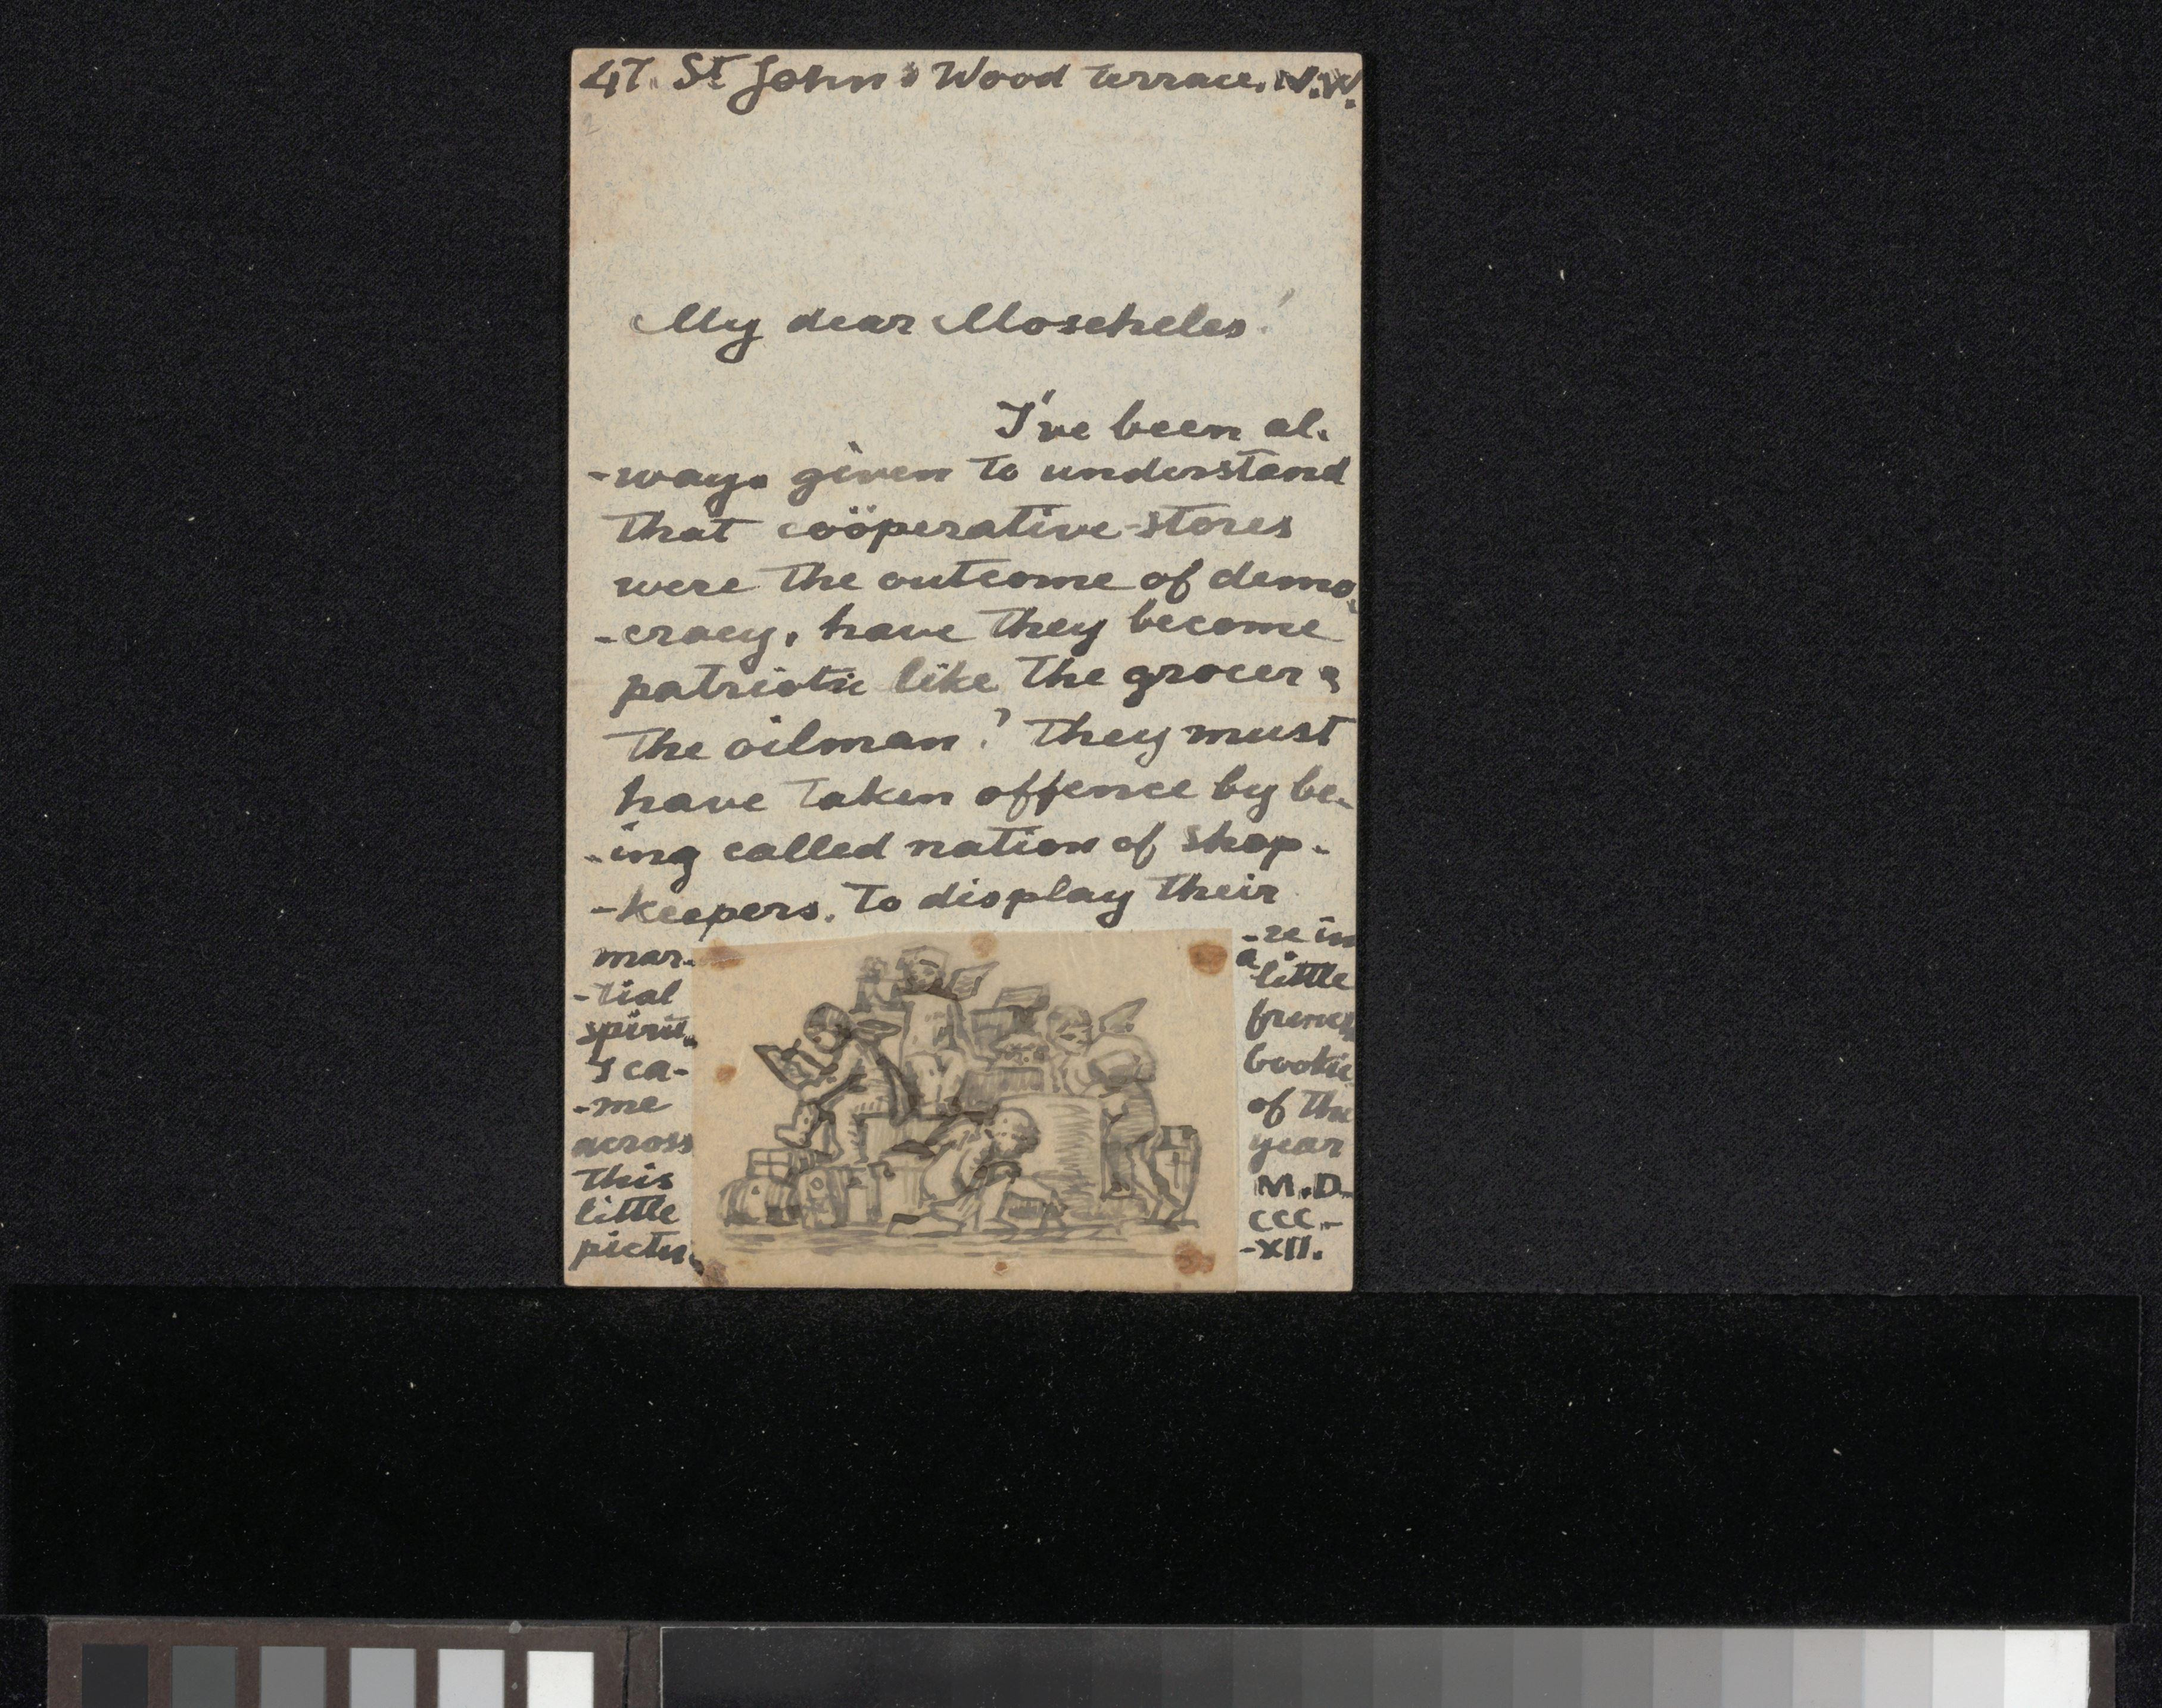 47. St John's Wood terrace. N.W.
My dear Moscheles!
I've been al-
-ways given to understand
that coöperative-stores
were the outcome of demo-
-cracy, have they become
patriotic like the grocer &
the oilman? They must
have taken offence by be-
-ing called nation of shop-
-keepers. To display their
mar-
-tial
spirit.
I ca-
-me
across
this
little
pictu-
-re in
a little
french
bookie
of the
year
M.D.
CCC.-
-XII.